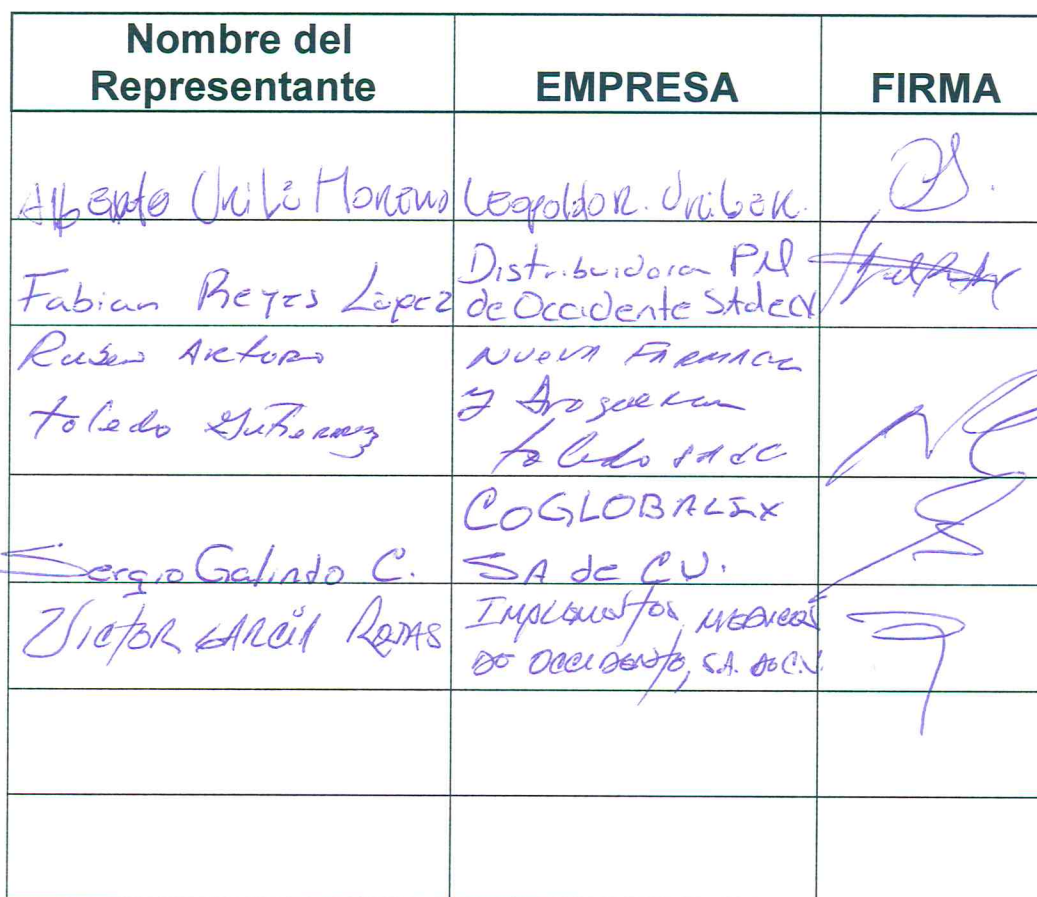 Nombre del
Representante
EMPRESA
FIRMA
Alberto Uribe Moreno
Leopoldo R. Uribe R.
Fabian Reyes López
Distribuidora PM
de Occidente SAdeCV
Ruben Arturo
Toledo Gutierrez
Nueva Farmacia
y Drogueria
Toledo SA
Sergio Galindo C.
COGLOBALIX
SA de CV.
Victor GARCIA ROJAS
IMPLEMENTOS MEDICOS
DE OCCIDENTE, S.A. DE C.V.